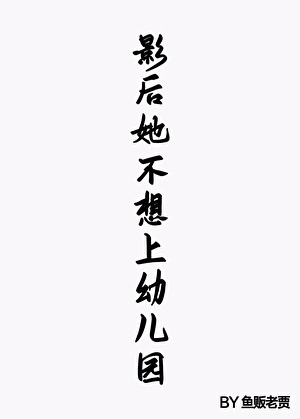 影后她不想上幼儿园
BY 鱼贩老贾